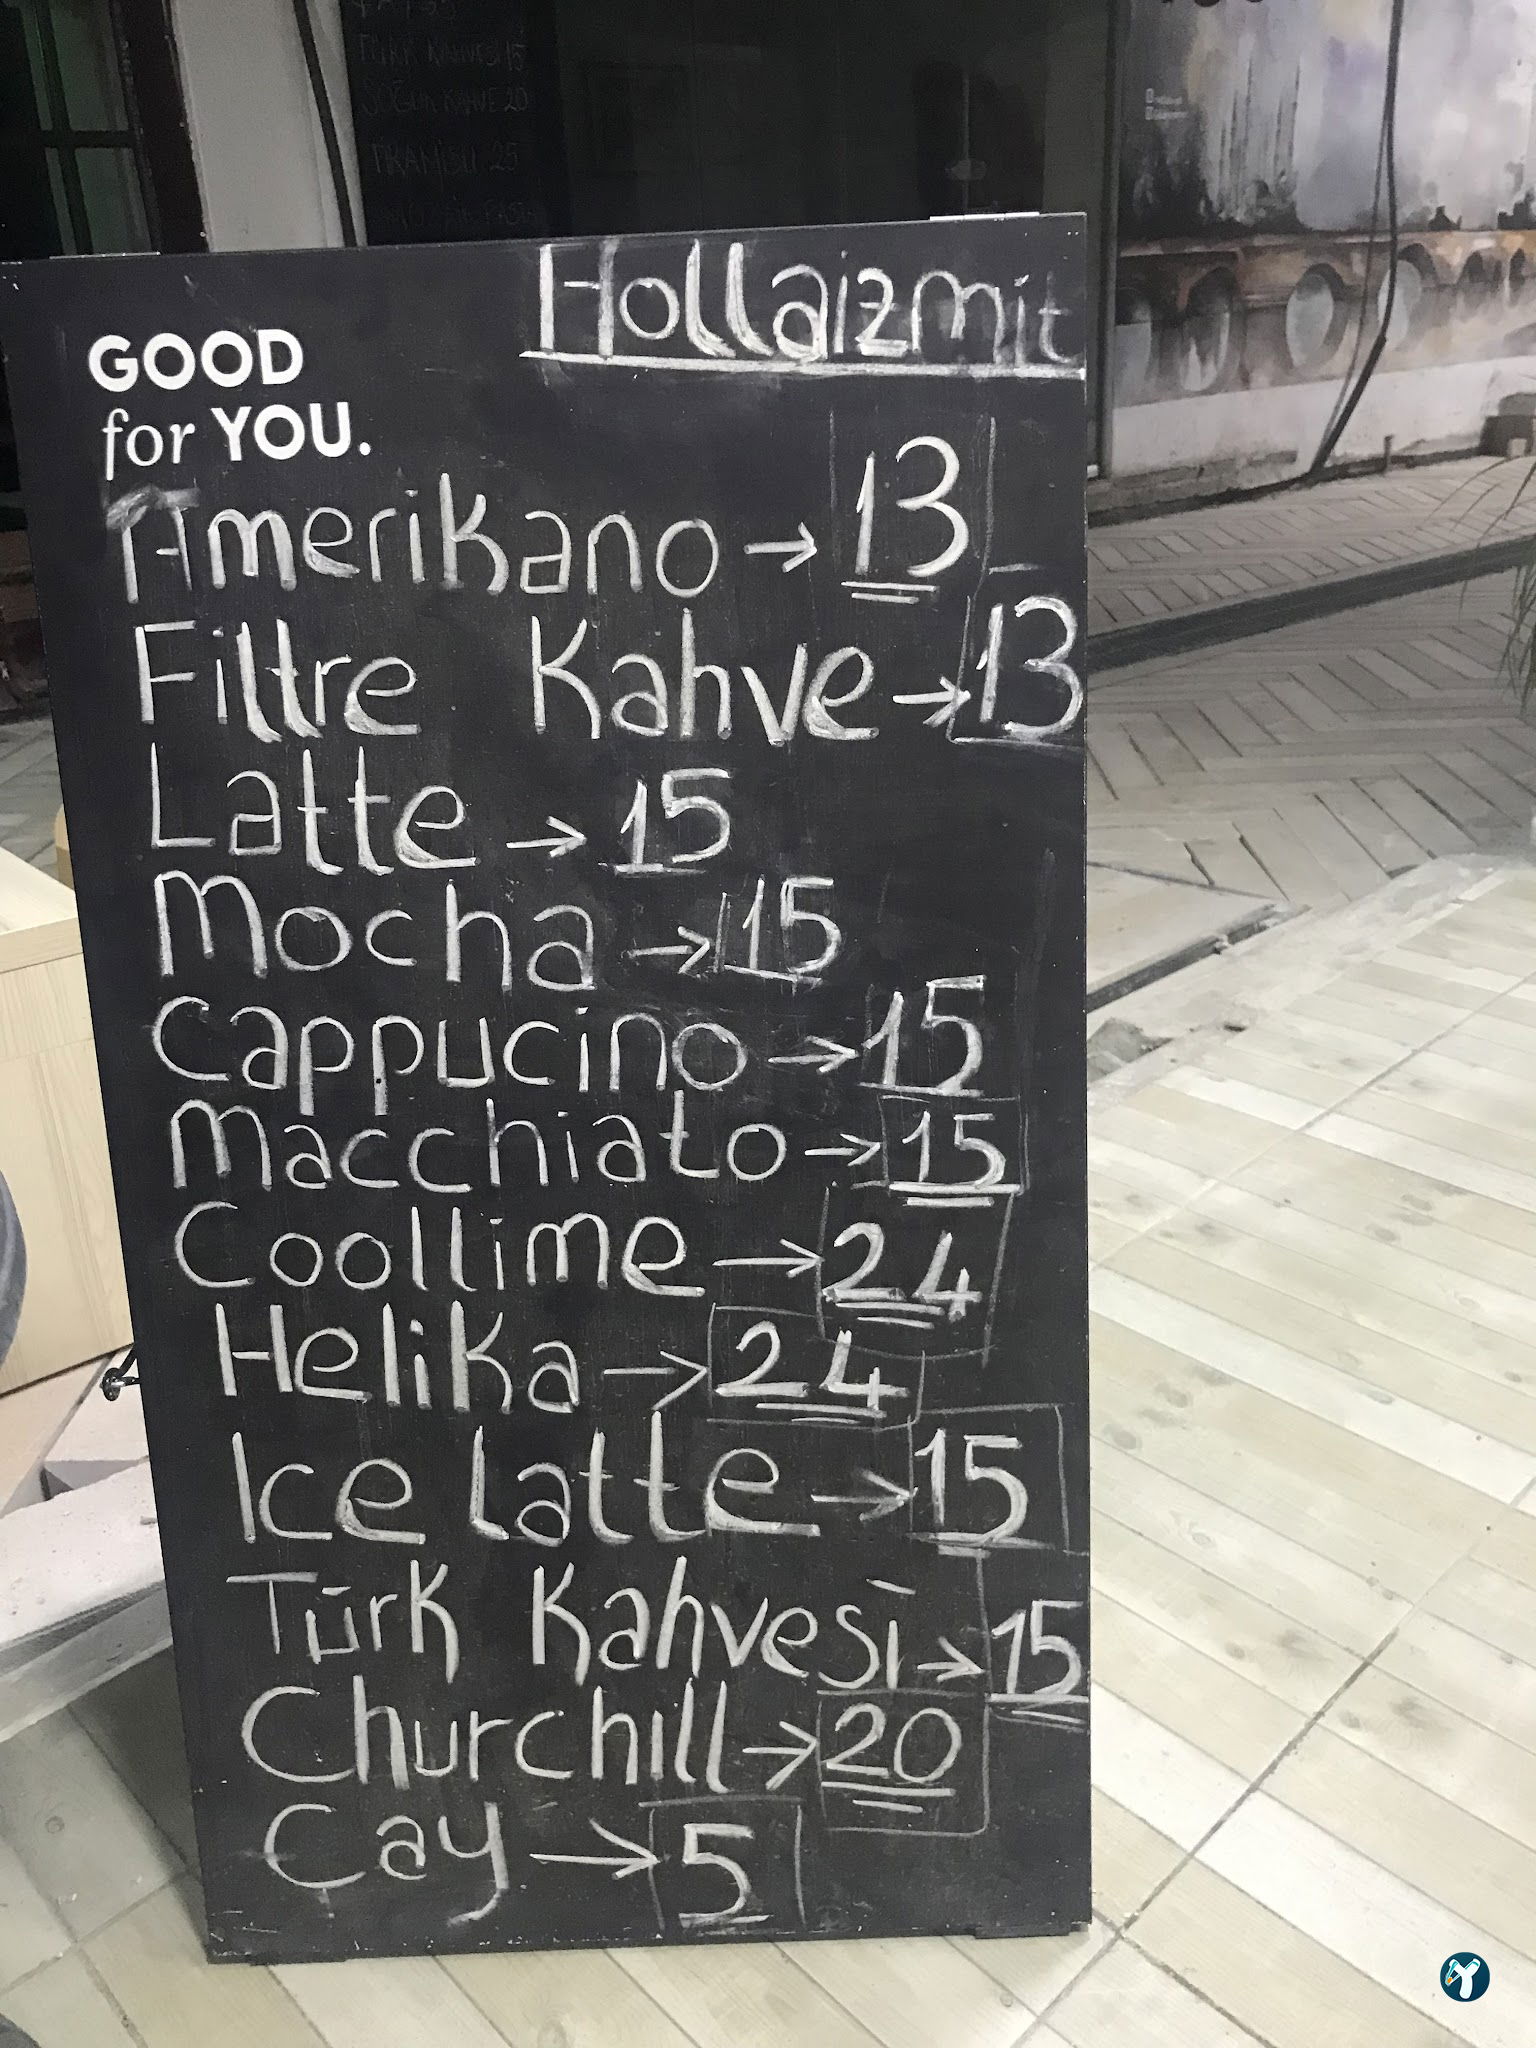 TÜRK KAHVESİ 15
SOĞUK KAHVE 20
TİRAMİSU 25
Hollaizmit
GOOD
for YOU.
Amerikano → 13
Filtre Kahve → 13
Latte → 15
Mocha → 15
Cappucino → 15
Macchiato → 15
Coollime → 24
Helika → 24
Ice Latte → 15
Türk Kahvesi → 15
Churchill → 20
Cay → 5